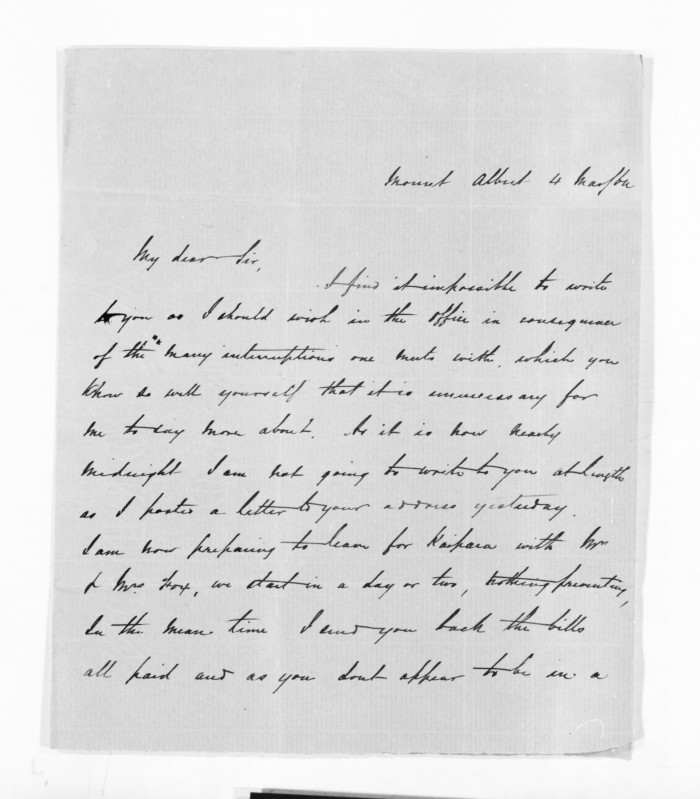 Mount Albert 4 Mar/64
My dear Sir,
I find it impossible to write
to you as I should wish in the office in consequence
of the many interruptions one meets with, which you
know so well yourself that it is unnecessary for
me to say more about. As it is now nearly
midnight I am not going to write to you at length
as I posted a letter to your address yesterday.
I am now preparing to leave for Kaipara with Mr
& Mrs. Fox, we start in a day or two, nothing preventing,
In the mean time I send you back the bills
all paid and as you dont appear to be in a